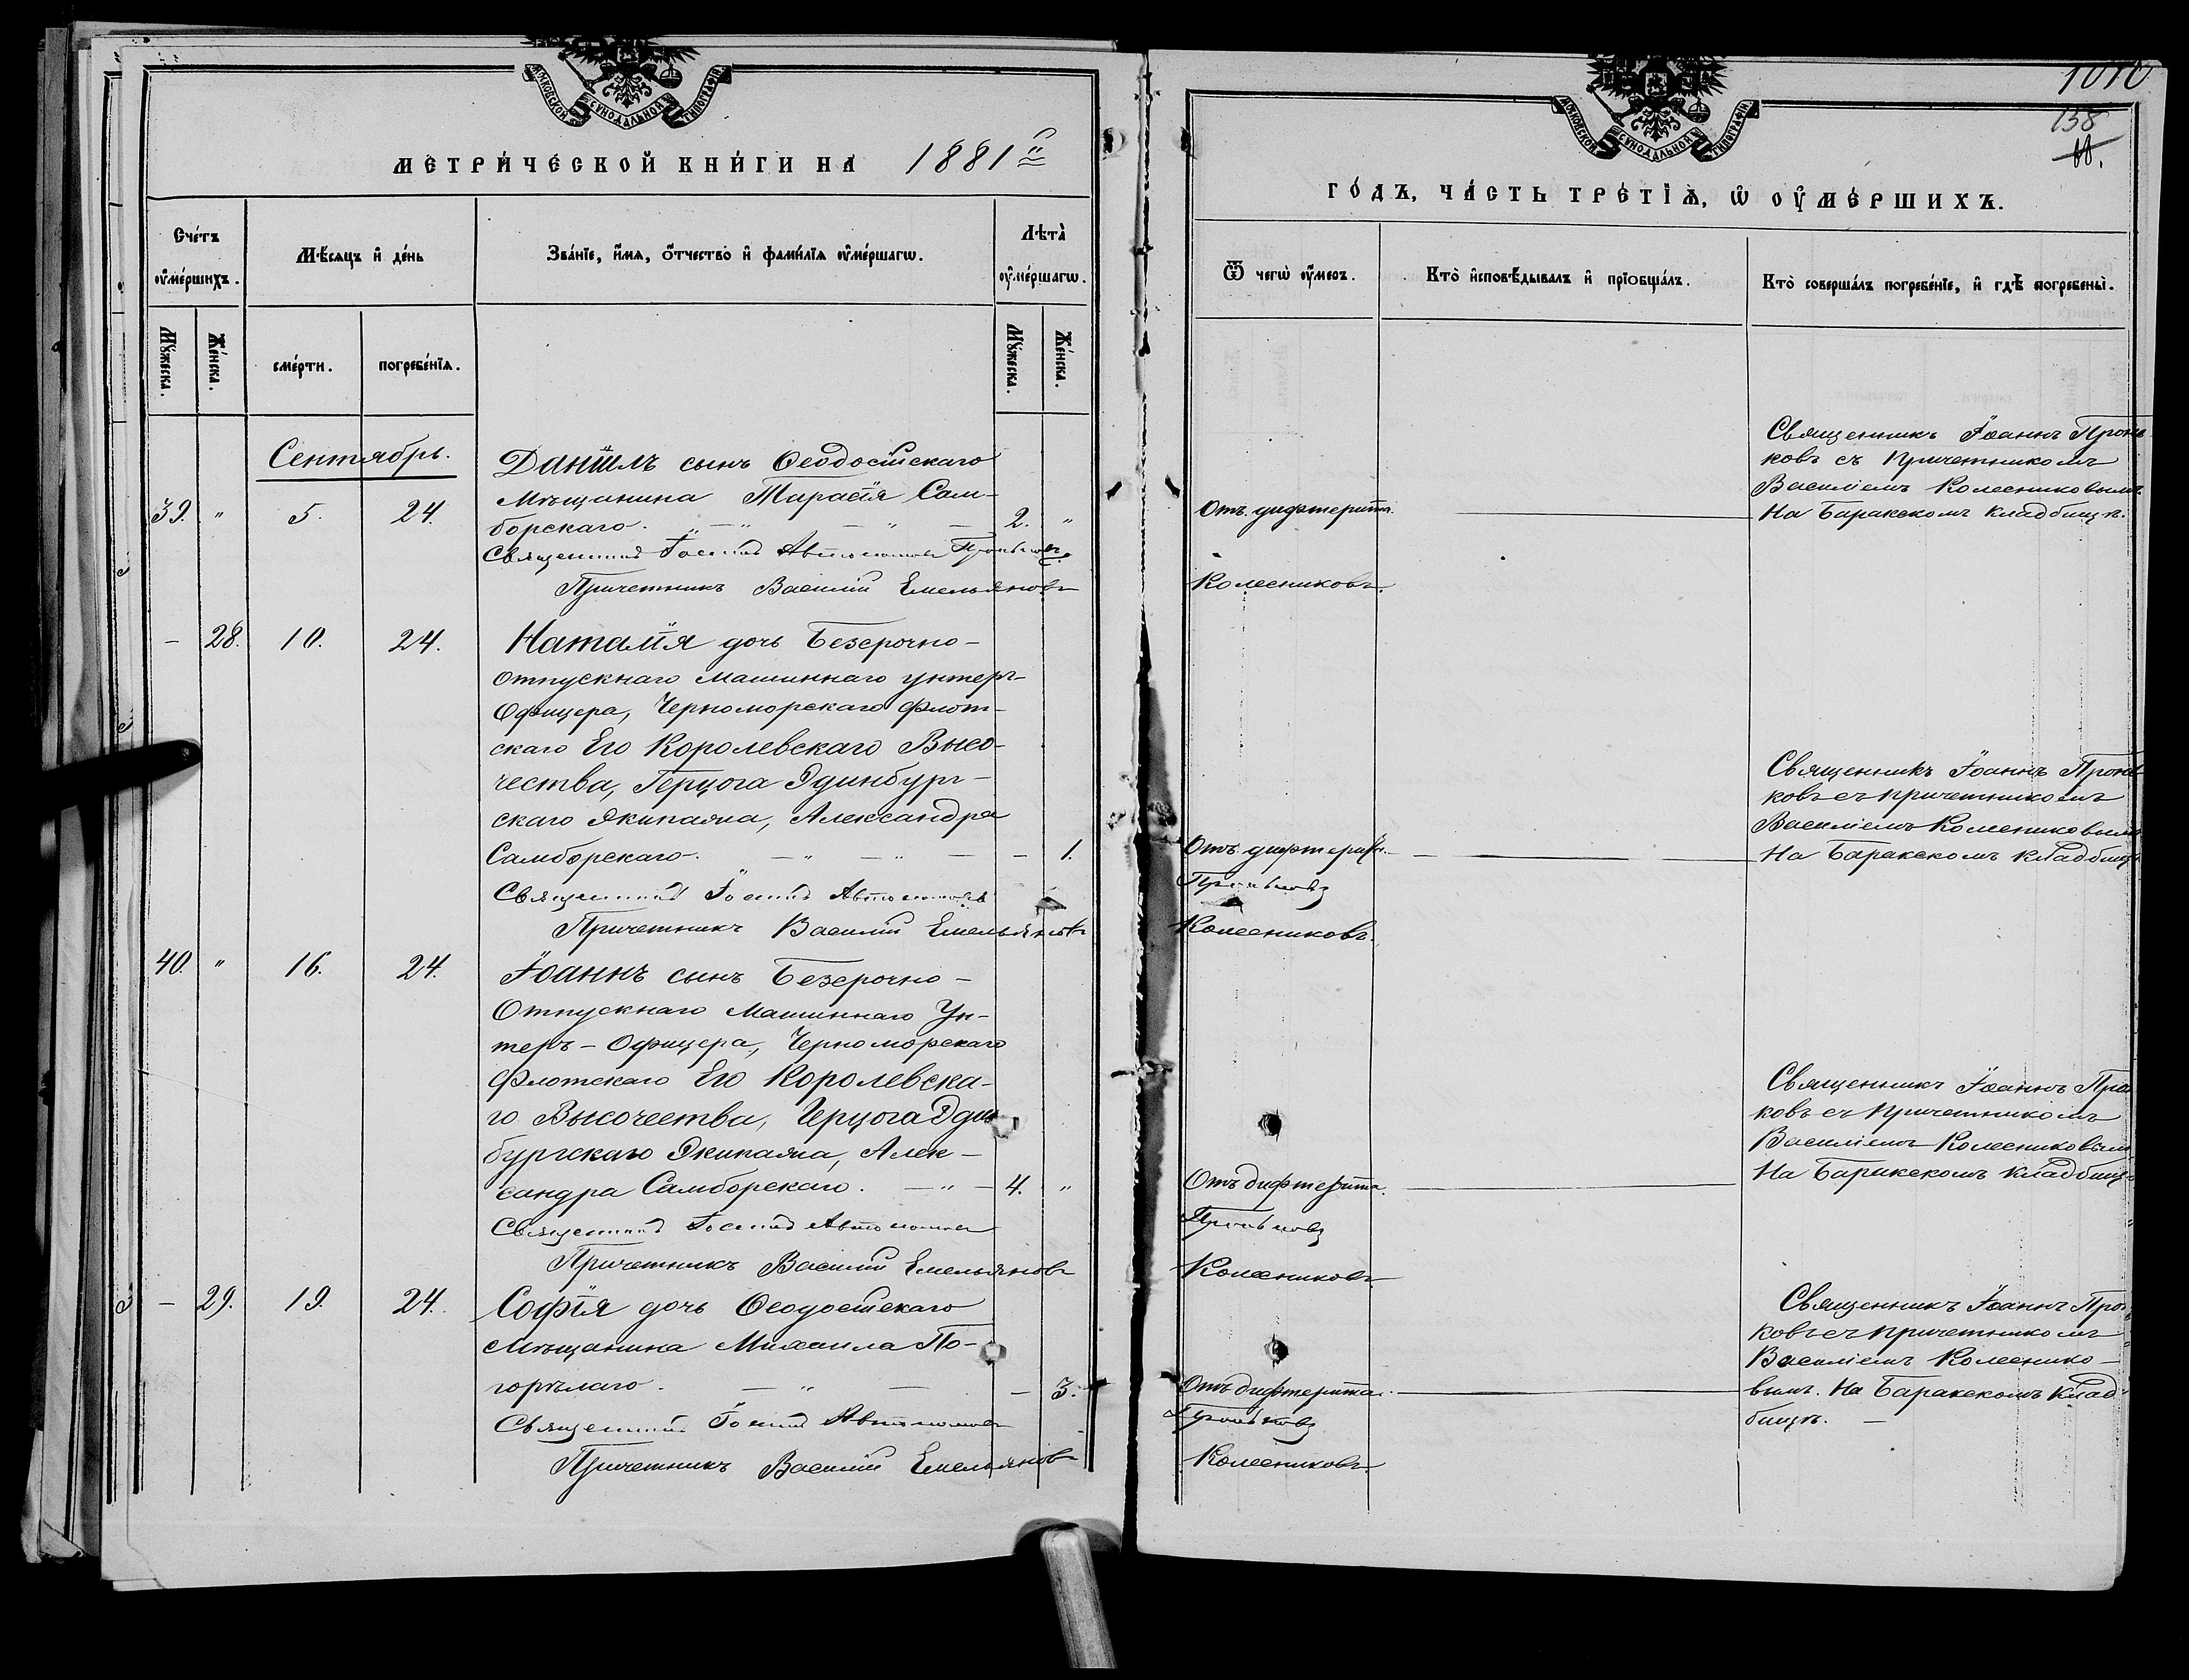 МОСКОВСКОЙ СѴНОДАЛЬНОЙ ТИПОГРАФІИ
МЕТРИ́ЧЕСКОЙ КНИ́ГИ НА 1881й
Сче́тъ оу҆ме́ршихъ.
Мѣ́сяцъ и҆ де́нь
Зва́нїе, и҆́мѧ, ѻ҆́тчество и҆ фами́лїѧ оу҆ме́ршагѡ.
Лѣ́та оу҆ме́ршагѡ.
Му́жеска.
Же́нска.
сме́рти.
погребе́нїѧ.
Му́жеска.
Же́нска.
Сентябрь.
Даніилъ сынъ Ѳеодосійскаго
39. " 5. 24. Мѣщанина Тарасія Сам-
борскаго. — " — " — 2. "
Священникъ Іоаннъ Автономовъ Проньковъ.
Причетникъ Василій Емельяновъ
— 28. 10. 24. Наталія дочь Безсрочно-
отпускнаго Машиннаго унтеръ-
Офицера, Черноморскаго Флот-
скаго Его Королевскаго Высо-
чества, Герцога Эдинбург-
скаго Экипажа, Александра
Самборскаго. — " — " — — 1.
Священникъ Іоаннъ Автономовъ
Причетникъ Василій Емельяновъ
40. " 16. 24. Іоаннъ сынъ Безсрочно-
Отпускнаго Машиннаго Ун-
теръ-Офицера, Черноморскаго
Флотскаго Его Королевска-
го Высочества, Герцога Эдин
бургскаго Экипажа, Алек-
сандра Самборскаго. — " — 4. "
Священникъ Іоаннъ Автономовъ
Причетникъ Василій Емельяновъ
— 29. 19. 24. Софія дочь Ѳеодосійскаго
Мѣщанина Михаила По-
горѣлаго. — " — — 3.
Священникъ Іоаннъ Автономовъ
Причетникъ Василій Емельяновъ
МОСКОВСКОЙ СѴНОДАЛЬНОЙ ТИПОГРАФІИ
1010
158
ГО́ДЪ, ЧА́СТЬ ТРЕ́ТЇѦ, Ѡ҆ ОУ҆МЕ́РШИХЪ.
Ѿ чегѡ̀ оу҆́меръ.
Кто̀ и҆сповѣ́дывалъ и҆ прїобща́лъ.
Кто̀ соверша́лъ погребе́нїе, и҆ гдѣ̀ погребены̀.
Священникъ Іоаннъ Пронь
ковъ съ Причетникомъ
Василіемъ Колесниковымъ
Отъ дифтерита. На Баракскомъ Кладбищѣ.
Колесниковъ.
Священникъ Іоаннъ Пронь
ковъ съ причетникомъ
Василіемъ Колесниковымъ
Отъ дифтерита. На Баракскомъ Кладбищѣ
Проньковъ
Колесниковъ.
Священникъ Іоаннъ Про
ковъ съ Причетникомъ
Василіемъ Колесниковым
Отъ дифтерита. На Баракскомъ Кладбищѣ
Проньковъ
Колесниковъ
Священникъ Іоаннъ Прон
ковъ съ причетникомъ
Василіемъ Колеснико-
Отъ дифтерита. вымъ. На Баракскомъ Клад
Проньковъ бищѣ. —
Колесниковъ.